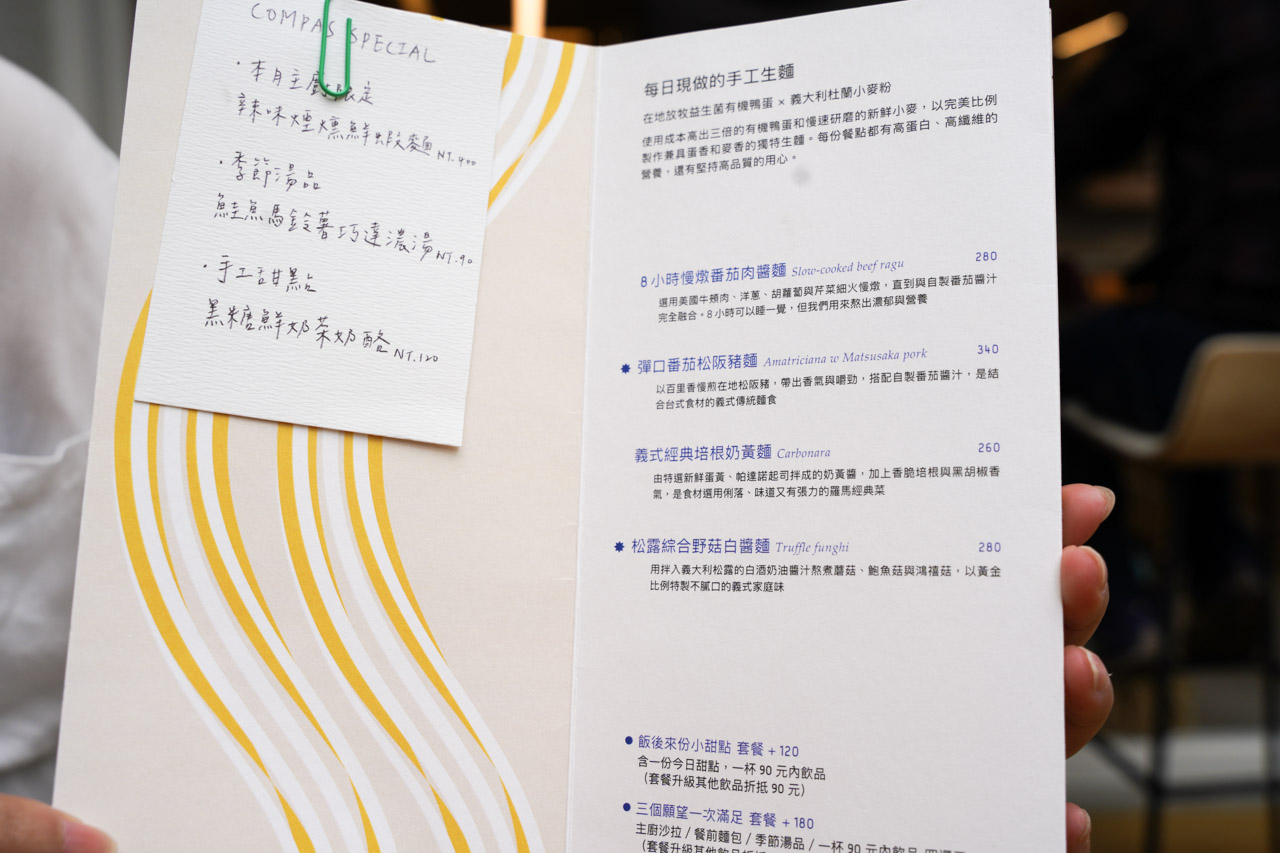 COMPAS SPECIAL
·本月主廚限定
辣味煙燻鮮蝦麵 NT.400
·季節湯品
鮭魚馬鈴薯巧達濃湯 NT.90
·手工甜點
黑糖鮮奶茶奶酪 NT.120
每日現做的手工生麵
在地放牧益生菌有機鴨蛋 × 義大利杜蘭小麥粉
使用成本高出三倍的有機鴨蛋和慢速研磨的新鮮小麥，以完美比例
製作兼具蛋香和麥香的獨特生麵。每份餐點都有高蛋白、高纖維的
營養，還有堅持高品質的用心。
8 小時慢燉番茄肉醬麵 Slow-cooked beef ragu 280
選用美國牛頰肉、洋蔥、胡蘿蔔與芹菜細火慢燉，直到與自製番茄醬汁
完全融合。8 小時可以睡一覺，但我們用來熬出濃郁與營養
彈口番茄松阪豬麵 Amatriciana w Matsusaka pork 340
以百里香慢煎在地松阪豬，帶出香氣與嚼勁，搭配自製番茄醬汁，是結
合台式食材的義式傳統麵食
義式經典培根奶黃麵 Carbonara 260
由特選新鮮蛋黃、帕達諾起司拌成的奶黃醬，加上香脆培根與黑胡椒香
氣，是食材選用俐落、味道又有張力的羅馬經典菜
松露綜合野菇白醬麵 Truffle funghi 280
用拌入義大利松露的白酒奶油醬汁熬煮蘑菇、鮑魚菇與鴻禧菇，以黃金
比例特製不膩口的義式家庭味
● 飯後來份小甜點 套餐 + 120
含一份今日甜點，一杯 90 元內飲品
（套餐升級其他飲品折抵 90 元）
● 三個願望一次滿足 套餐 + 180
主廚沙拉 / 餐前麵包 / 季節湯品 / 一杯 90 元內飲品
（套餐升級其他飲品折抵